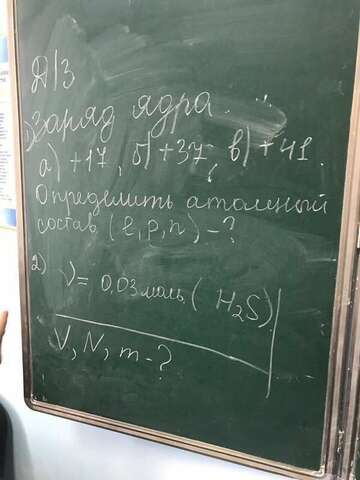 Д/З
1) Заряд ядра.
а) +17, б) +37, в) +41.
Определить атомный
состав (e, p, n) - ?
2)
ν = 0,03 моль (H₂S)
V, N, m - ?